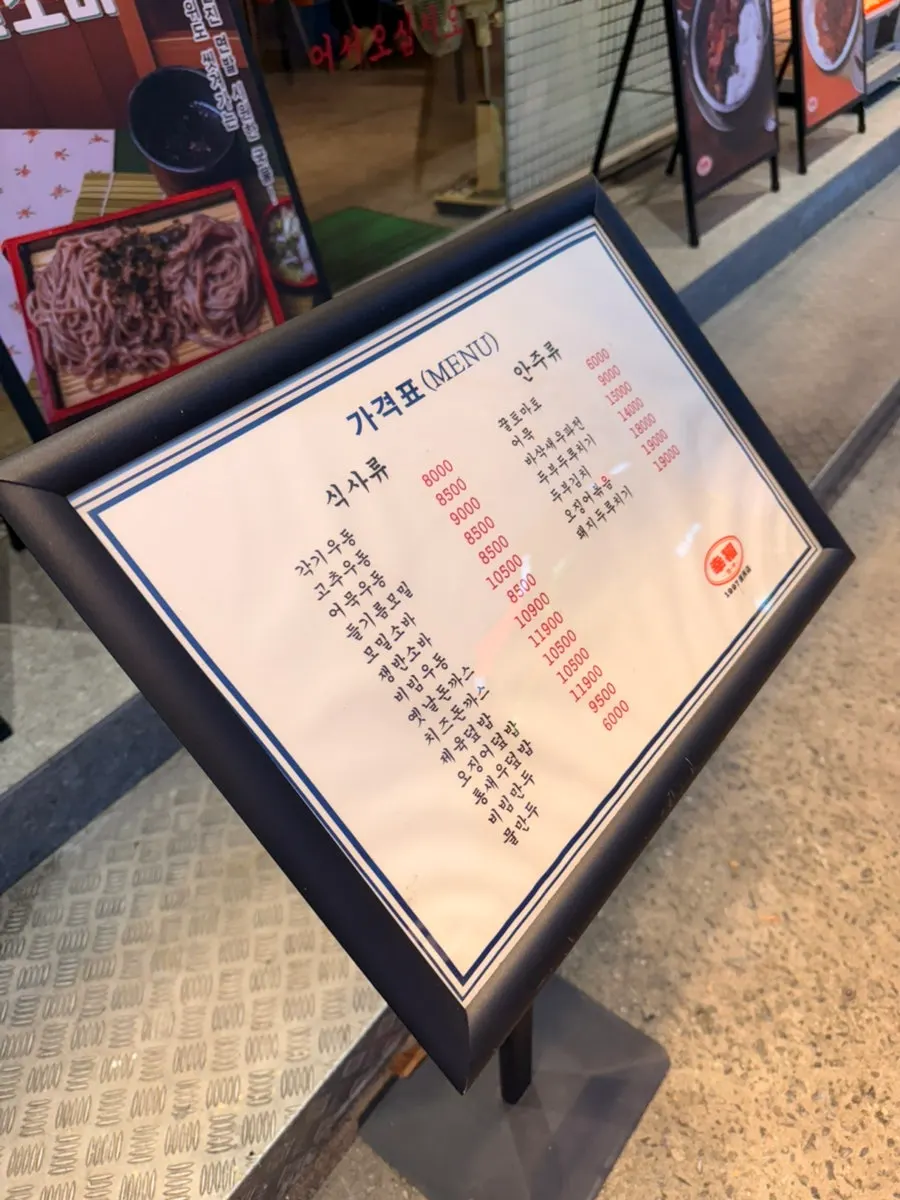 어서오십시오
가격표(MENU)
식사류
각기우동 8000
고추우동 8500
어묵우동 9000
들기름모밀 8500
모밀소바 8500
쟁반소바 10500
비빔우동 8500
옛날돈까스 10900
치즈돈까스 11900
제육덮밥 10500
오징어덮밥 10500
통새우덮밥 11900
비빔만두 9500
물만두 6000
안주류
꿀토마토 6000
어묵 9000
바삭새우파전 15000
두부두루치기 14000
두부김치 18000
오징어볶음 19000
돼지두루치기 19000